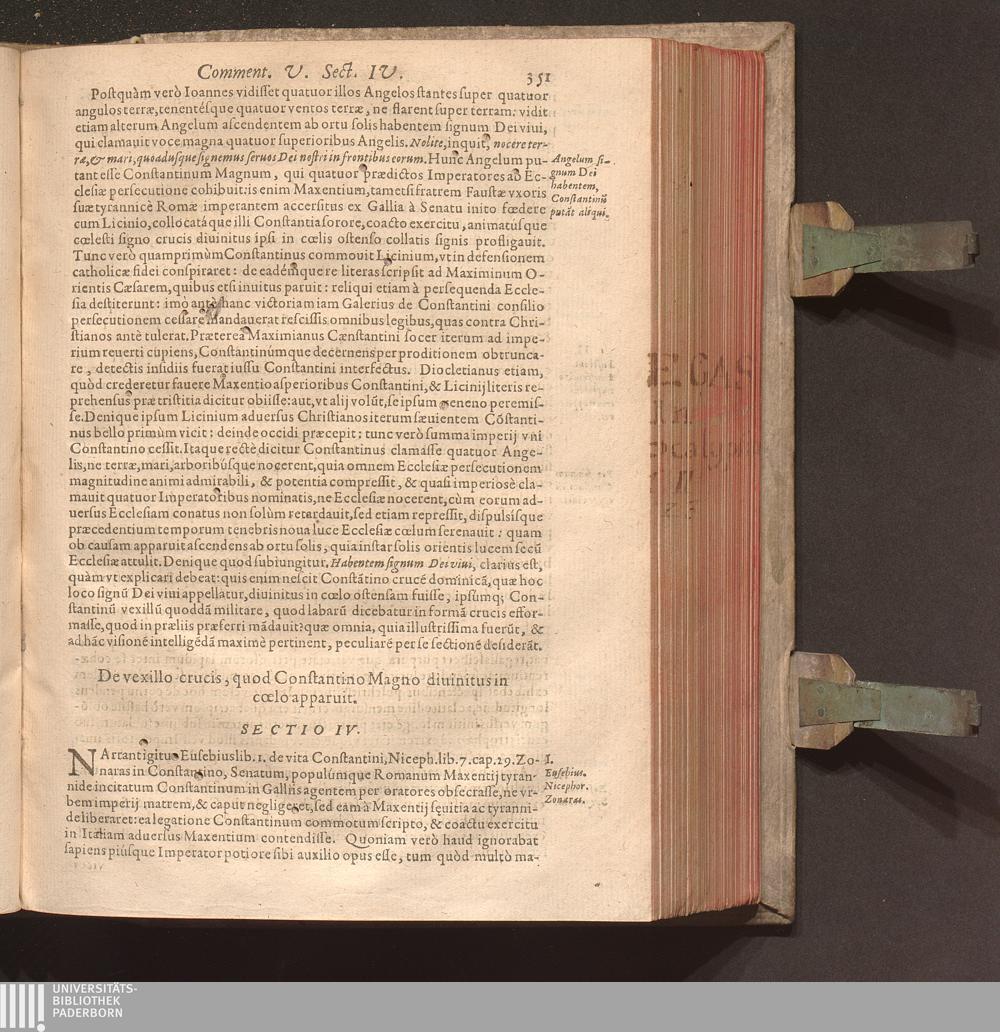 Comment. V. Sect. IV. 351
Postquàm verò Ioannes vidisset quatuor illos Angelos stantes super quatuor
angulos terræ, tenentésque quatuor ventos terræ, ne flarent super terram: vidit
etiam alterum Angelum ascendentem ab ortu solis habentem signum Dei viui,
qui clamauit voce magna quatuor superioribus Angelis. Nolite, inquit, nocere ter-
ræ, & mari, quoadusque signemus seruos Dei nostri in frontibus eorum. Hunc Angelum pu-
tant esse Constantinum Magnum, qui quatuor prædictos Imperatores ab Ec-
clesiæ persecutione cohibuit: is enim Maxentium, tametsi fratrem Faustæ vxoris
suæ tyrannicè Romæ imperantem accersitus ex Gallia à Senatu inito fœdere
cum Licinio, collocatáque illi Constantia sorore, coacto exercitu, animatusque
cœlesti signo crucis diuinitus ipsi in cœlis ostenso collatis signis profligauit.
Tunc verò quamprimùm Constantinus commouit Licinium, vt in defensionem
catholicæ fidei conspiraret: de eadémque re literas scripsit ad Maximinum O-
rientis Cæsarem, quibus etsi inuitus paruit: reliqui etiam à persequenda Eccle-
sia destiterunt: imò antè hanc victoriam iam Galerius de Constantini consilio
persecutionem cessare mandauerat rescissis omnibus legibus, quas contra Chri-
stianos antè tulerat. Præterea Maximianus Cænstantini socer iterum ad impe-
rium reuerti cupiens, Constantinúmque decernens per proditionem obtrunca-
re, detectis insidiis fuerat iussu Constantini interfectus. Diocletianus etiam,
quòd crederetur fauere Maxentio asperioribus Constantini, & Licinij literis re-
prehensus præ tristitia dicitur obiisse: aut, vt alij volūt, se ipsum veneno peremis-
se. Denique ipsum Licinium aduersus Christianos iterum sæuientem Cōstanti-
nus bello primùm vicit: deinde occidi præcepit: tunc verò summa imperij vni
Constantino cessit. Itaque rectè dicitur Constantinus clamasse quatuor Ange-
lis, ne terræ, mari, arboribúsque nocerent, quia omnem Ecclesiæ persecutionem
magnitudine animi admirabili, & potentia compressit, & quasi imperiosè cla-
mauit quatuor Imperatoribus nominatis, ne Ecclesiæ nocerent, cùm eorum ad-
uersus Ecclesiam conatus non solùm retardauit, sed etiam repressit, dispulsísque
præcedentium temporum tenebris noua luce Ecclesiæ cœlum serenauit: quam
ob causam apparuit ascendens ab ortu solis, quia instar solis orientis lucem secū
Ecclesiæ attulit. Denique quod subiungitur. Habentem signum Dei viui, clarius est,
quàm vt explicari debeat: quis enim nescit Constātino crucē dominicā, quæ hoc
loco signū Dei viui appellatur, diuinitus in cœlo ostensam fuisse, ipsumq; Con-
stantinū vexillū quoddā militare, quod labarū dicebatur in formā crucis effor-
masse, quod in præliis præferri mādauit? quæ omnia, quia illustrissima fuerūt, &
ad hāc visionē intelligēdā maximè pertinent, peculiarē per se sectionē desiderāt.
Angelum si-
gnum Dei
habentem,
Constantinū
putāt aliqui.
De vexillo crucis, quod Constantino Magno diuinitus in
cœlo apparuit.
SECTIO IV.
NArrant igitur Eusebius lib. 1. de vita Constantini, Niceph. lib. 7. cap. 29. Zo-
naras in Constantino, Senatum, populúmque Romanum Maxentij tyran-
nide incitatum Constantinum in Galliis agentem per oratores obsecrasse, ne vr-
bem imperij matrem, & caput negligeret, sed eam à Maxentij sęuitia ac tyranni-
de liberaret: ea legatione Constantinum commotum scripto, & coactu exercitu
in Italiam aduersus Maxentium contendisse. Quoniam verò haud ignorabat
sapiens piúsque Imperator potiore sibi auxilio opus esse, tum quòd multò ma-
1.
Eusebius.
Nicephor.
Zonaras.
UNIVERSITÄTS-
BIBLIOTHEK
PADERBORN